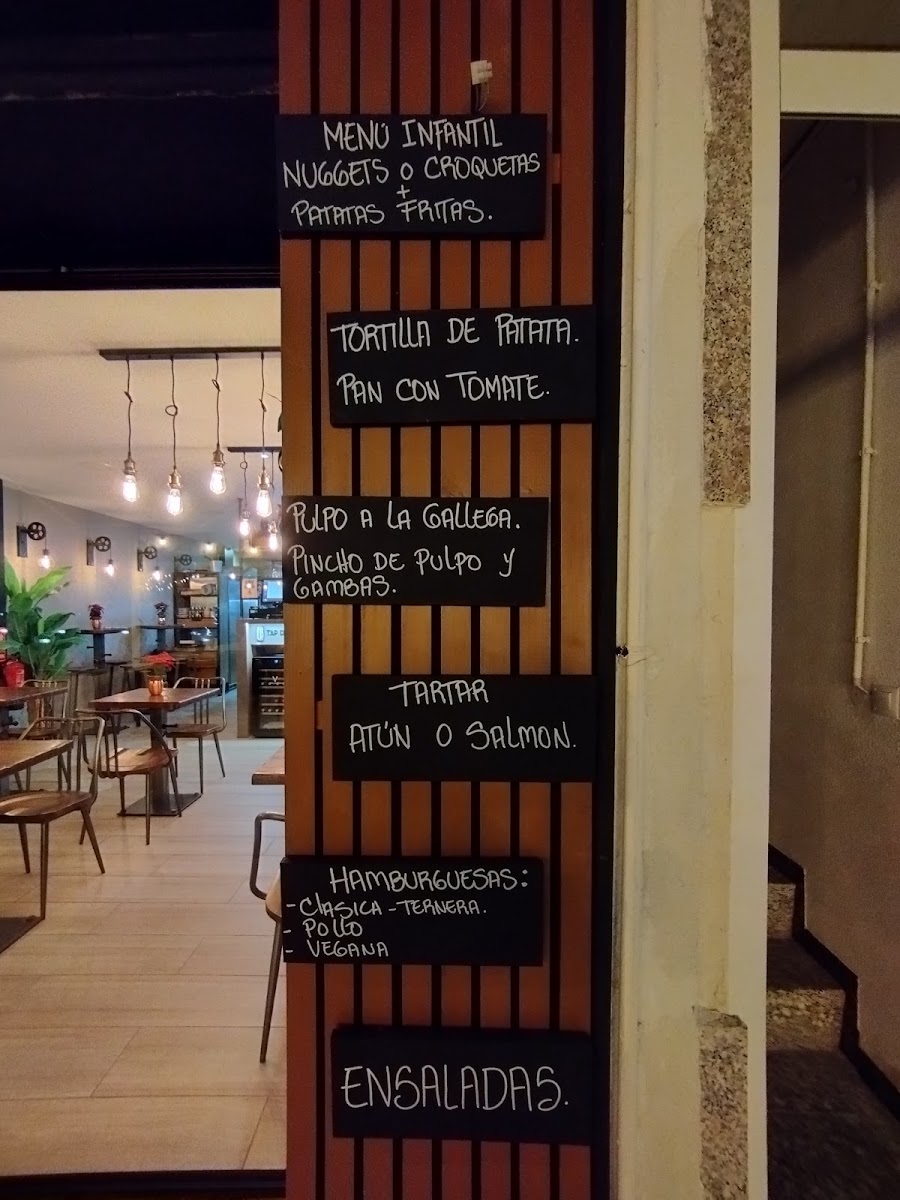 MENÚ INFANTIL
NUGGETS O CROQUETAS
+
PATATAS FRITAS.
TORTILLA DE PATATA.
PAN CON TOMATE.
PULPO A LA GALLEGA.
PINCHO DE PULPO Y
GAMBAS.
TARTAR
ATÚN O SALMON.
HAMBURGUESAS:
- CLASICA - TERNERA.
- POLLO
- VEGANA
ENSALADAS.